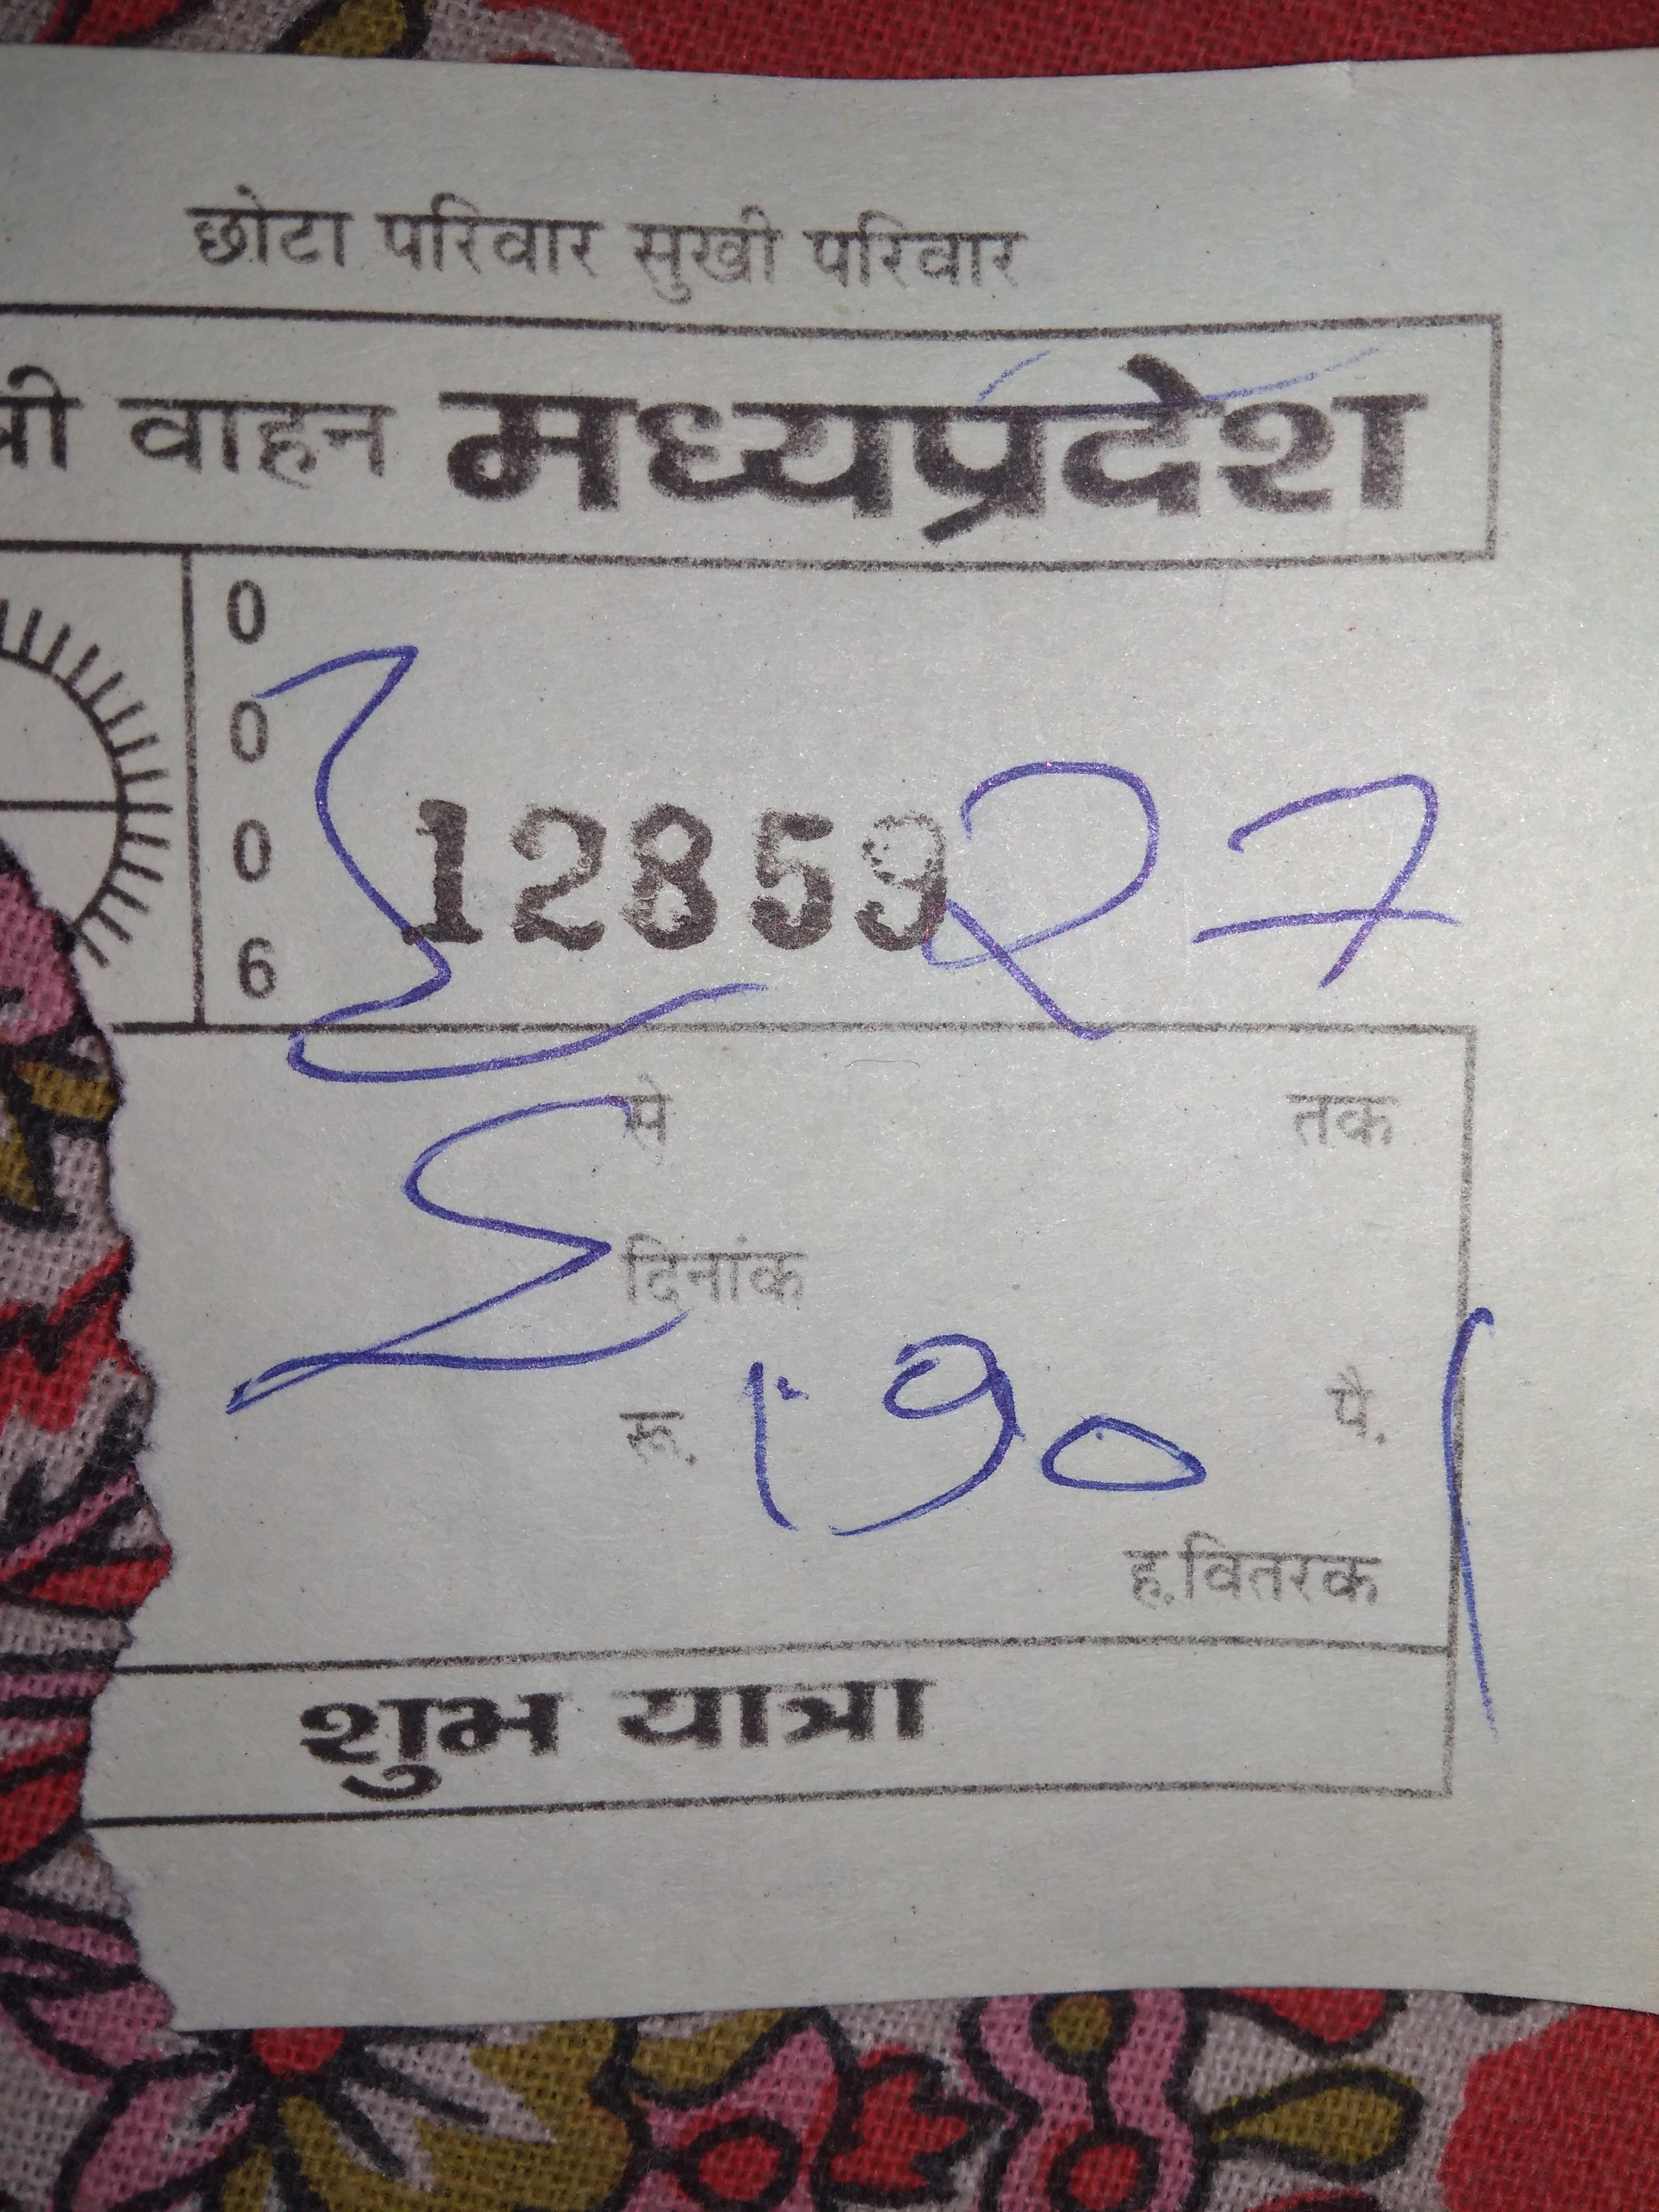 छोटा परिवार सुखी परिवार
त्री वाहन मध्यप्रदेश
0
0
0
6
12859
27
से तक
दिनांक
रू. 190 पै.
ह.वितरक
शुभ यात्रा